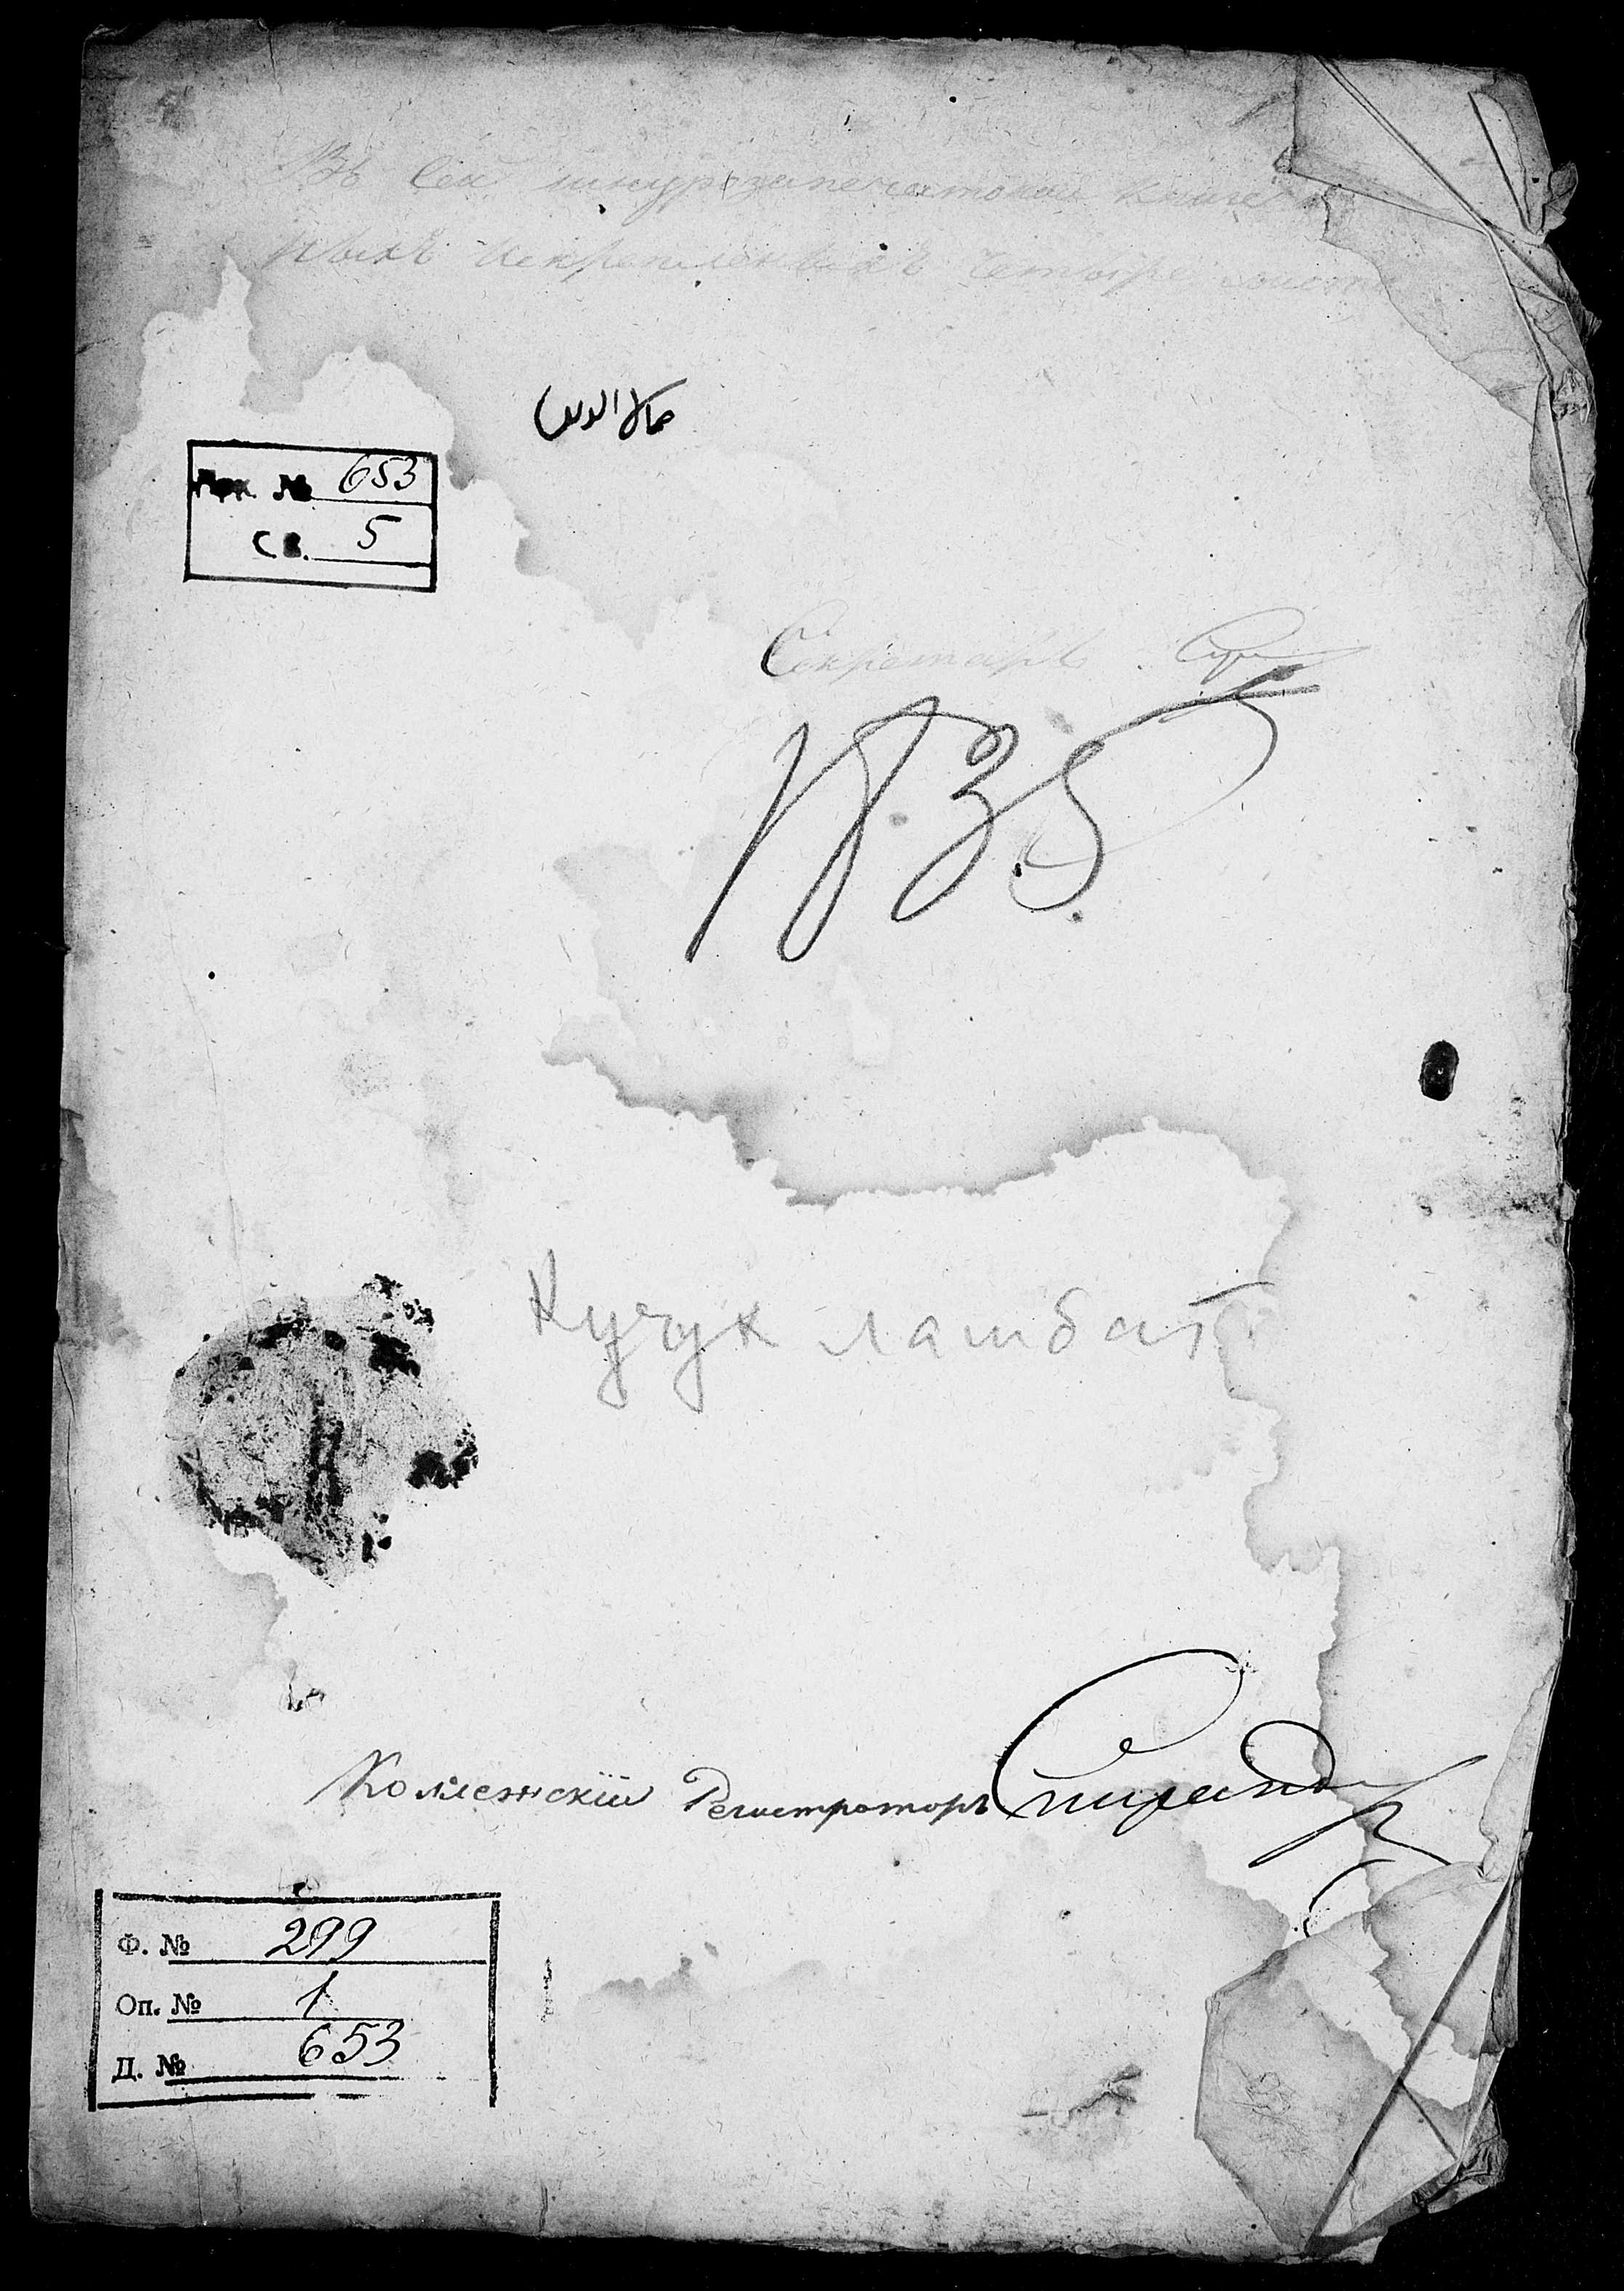 Въ сей шнурозапечатоной книге
ныхъ искрепленыхъ четыре листа
جمال الدين
Арх. № 653
Св. 5
Секретарь
Кучук ламбат
Коллежскій Регистраторъ
Ф. № 299
Оп. № 1
Д. № 653